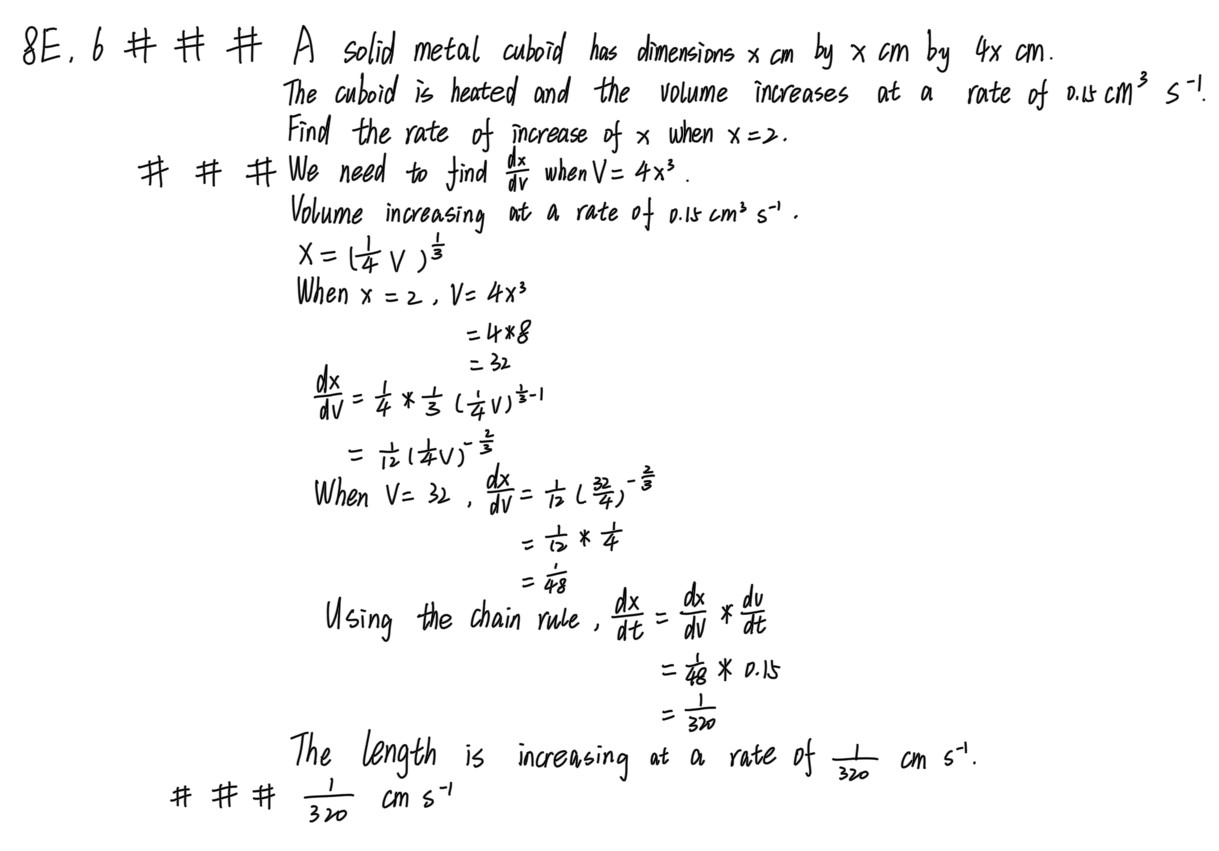 8E.6 # # # A solid metal cuboid has dimensions x cm by x cm by 4x cm.
The cuboid is heated and the volume increases at a rate of 0.15 cm³ s⁻¹.
Find the rate of increase of x when x=2.
# # # We need to find dx/dV when V= 4x³.
Volume increasing at a rate of 0.15 cm³ s⁻¹.
X = (1/4 V)^(1/3)
When x = 2, V= 4x³
= 4*8
= 32
dx/dV = 1/4 * 1/3 (1/4 V)^(1/3-1)
= 1/12 (1/4 V)^(-2/3)
When V= 32, dx/dV = 1/12 (32/4)^(-2/3)
= 1/12 * 1/4
= 1/48
Using the chain rule, dx/dt = dx/dV * dv/dt
= 1/48 * 0.15
= 1/320
The length is increasing at a rate of 1/320 cm s⁻¹.
# # # 1/320 cm s⁻¹